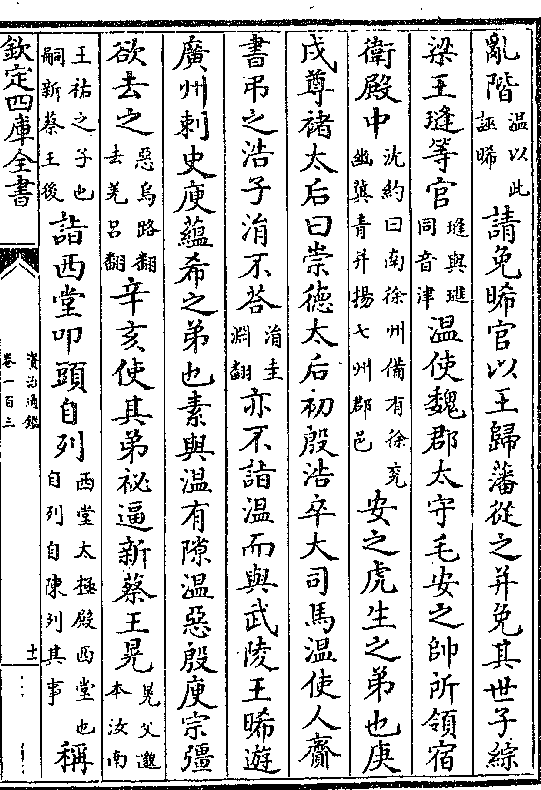 亂階溫以此誣晞請免晞官以王歸藩從之并免其世子綜
梁王㻱等官㻱與璡同音津溫使魏郡太守毛安之帥所領宿
衛殿中沈約曰南徐州備有徐兖幽冀青并揚七州郡邑安之虎生之弟也庚
戌尊褚太后曰崇德太后初殷浩卒大司馬溫使人齎
書弔之浩子涓不荅涓圭淵翻亦不詣溫而與武陵王晞遊
廣州刺史庾蘊希之弟也素與溫有隙溫惡殷庾宗彊
欲去之惡烏路翻去羌呂翻辛亥使其弟祕逼新蔡王晃晃父邈本汝南
王祐之子也嗣新蔡王後詣西堂叩頭自列西堂太極殿西堂也自列自陳列其事稱
欽定四庫全書
資治通鑑
卷一百三
十一